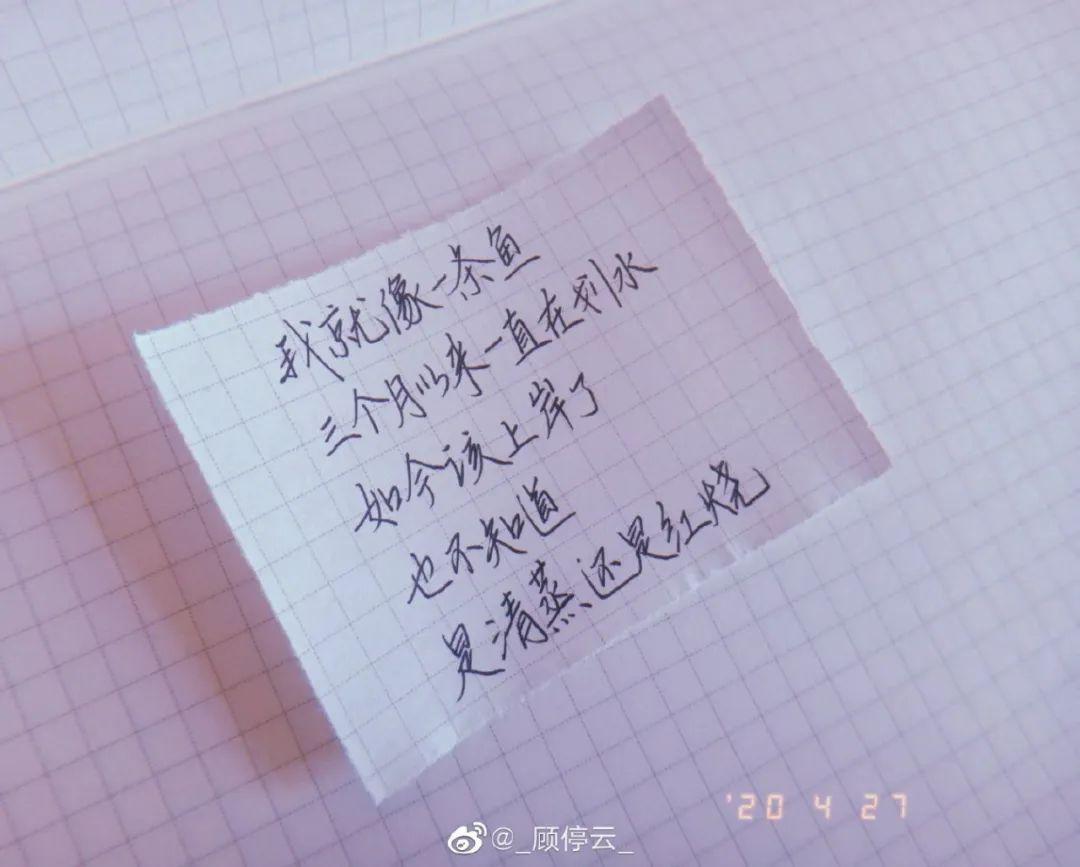 我就像一条鱼
三个月以来一直在划水
如今该上岸了
也不知道
是清蒸还是红烧
'20 4 27
@_顾停云_